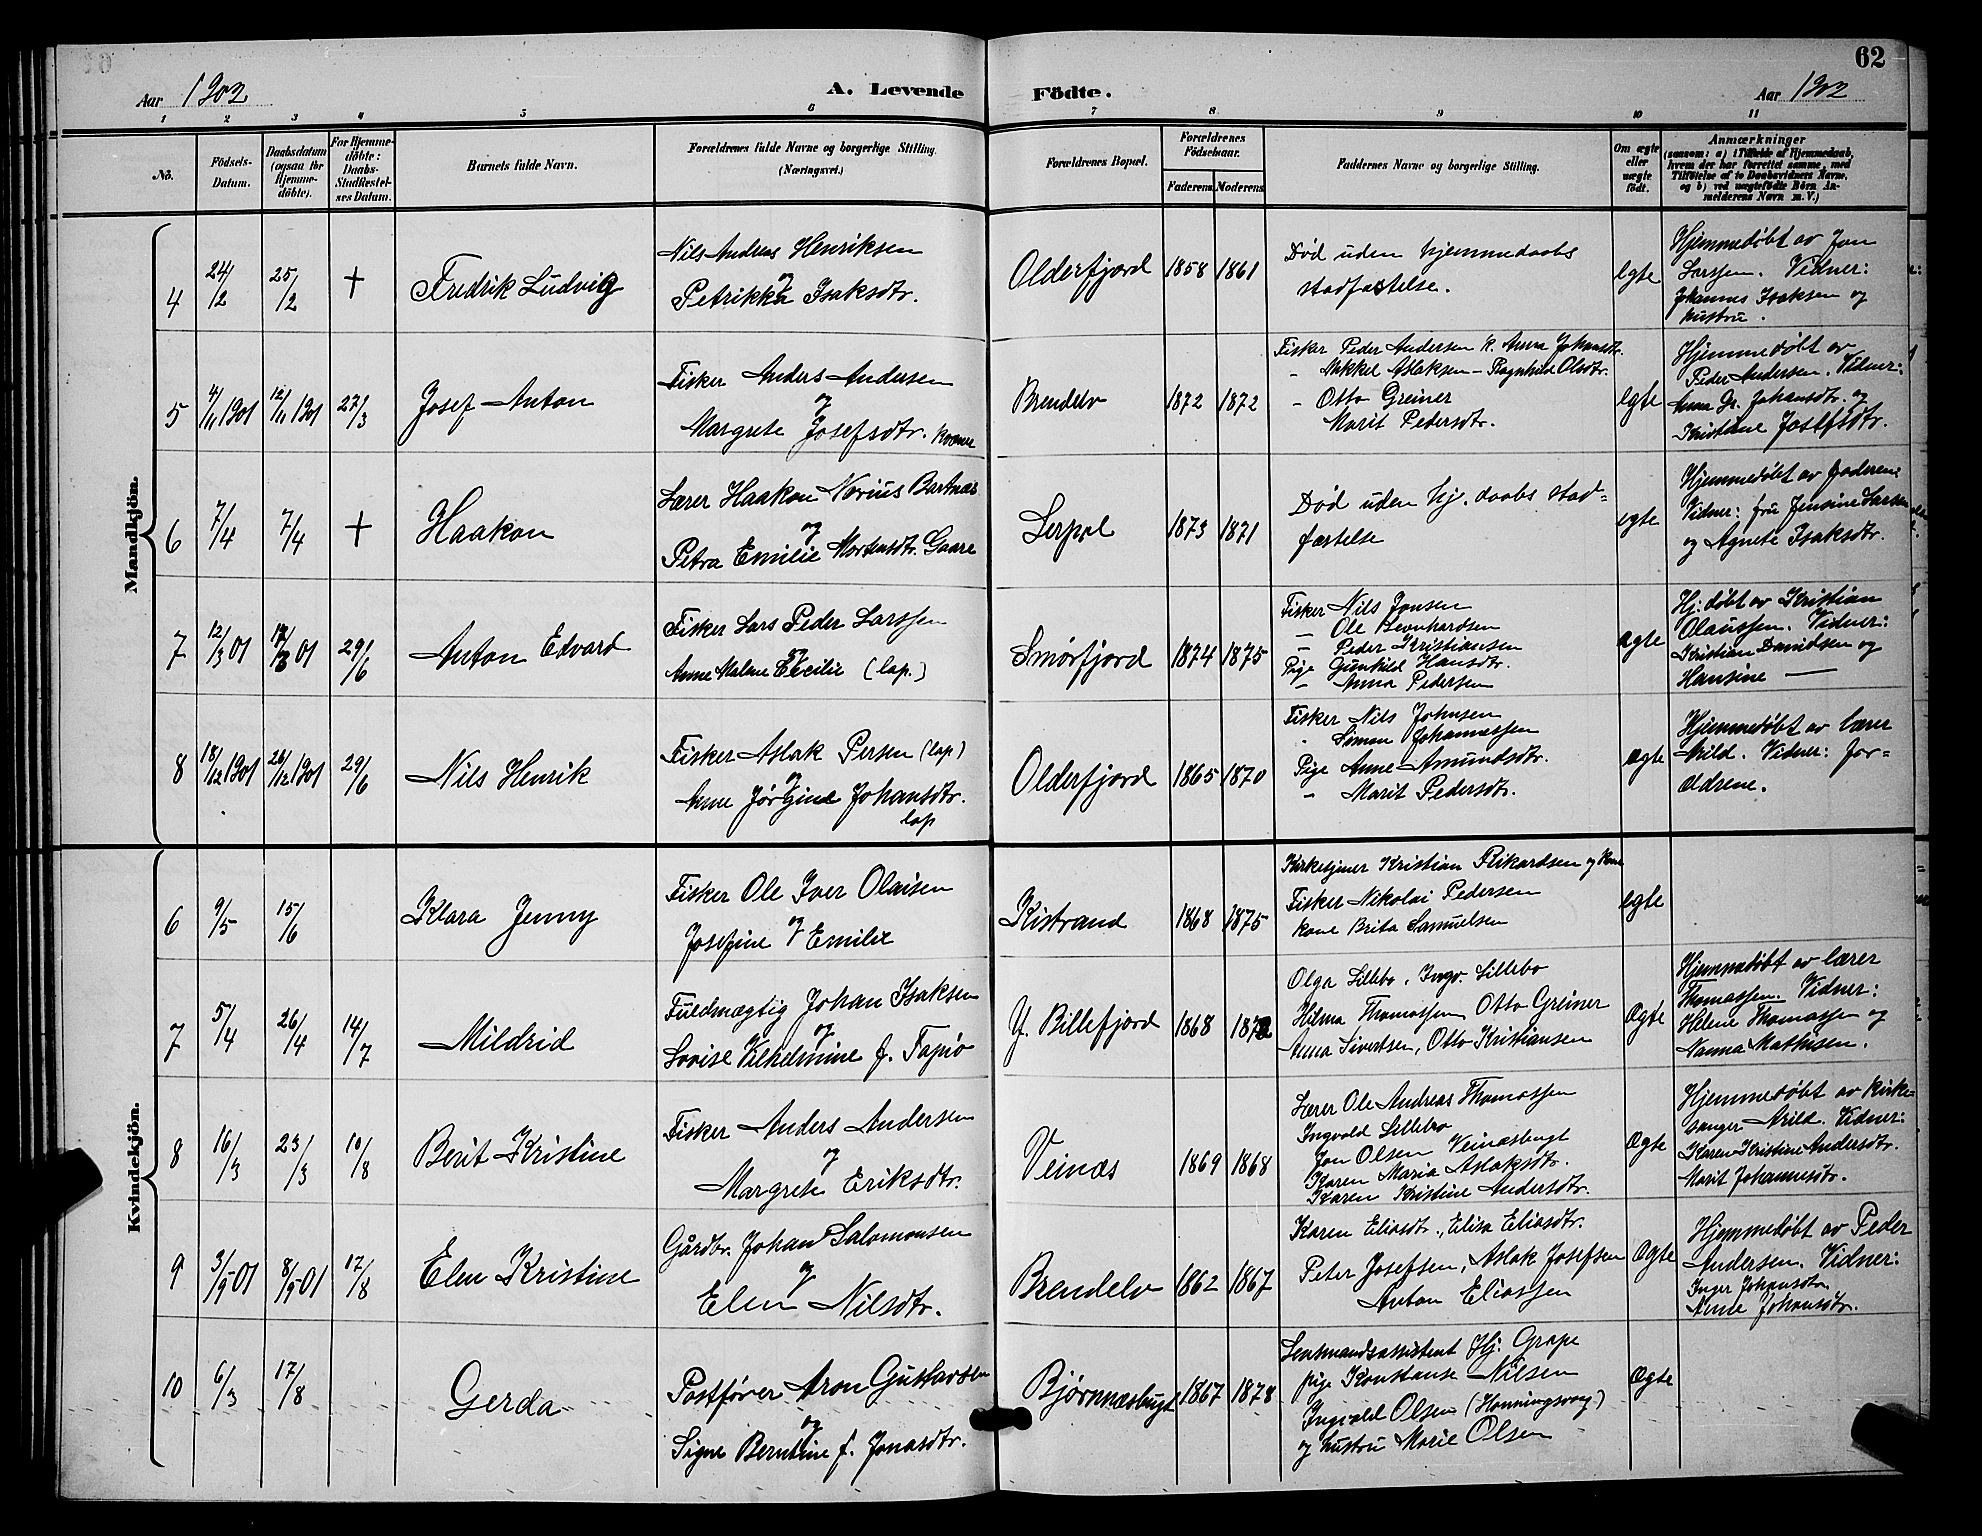 62
Aar 1902
A. Levende Födte.
Aar 1902
1 2 3 4 5 6 7 8 9 10 11
No.
Födsels-
Datum.
Daabsdatum
(ogsaa for
Hjemme-
döbte).
For Hjemme-
döbte:
Daabs-
Stadfæstel-
ses Datum.
Barnets fulde Navn.
Forældrenes fulde Navne og borgerlige Stilling.
(Næringsvei.)
Forældrenes Bopæl.
Forældrenes
Födselsaar.
Faderens Moderens
Faddernes Navne og borgerlige Stilling.
Om ægte
eller
uægte
födt.
Anmærkninger
(saasom: a) i Tilfælde af Hjemmedaab,
hvem der har forrettet samme, med
Tilföielse af to Daabsvidners Navne,
og b) ved uægtefödte Börn An-
melderens Navn m. V.)
Mandkjön.
4
24/2
25/2
+
Fredrik Ludvig
Nils Andreas Henriksen
og
Petrikka Isaksdtr.
Olderfjord
1858
1861
Død uden hjemmedaabs
stadfæstelse.
egte
Hjemmedøbt av Jon
Larssen. Vidner:
Johannes Isaksen og
hustru.
5
4/11 1901
12/11 1901
27/3
Josef Anton
Fisker Anders Andersen
og
Margrete Josefsdtr. kvæner
Brendelv
1872
1872
Fisker Peder Andersen k. Anna Johansdtr.
- Mikkel Aslaksen - Ragnhild Olsdtr.
- Otto Greiner
Marit Pedersdtr.
egte
Hjemmedøbt av
Peder Andersen. Vidner:
Anna Gr. Johansdtr. og
Kristine Josefsdtr.
6
7/4
7/4
+
Haakon
Lærer Haakon Norius Bartnæs
og
Petra Emilie Mortensdtr. Gaare
Lerpol
1873
1871
Død uden hj. daabs stad=
fæstelse
egte
Hjemmedøbt av faderen.
Vidner: fru Jensine Larsen
og Agnete Isaksdtr.
7
12/3 01
01
29/6
Anton Edvard
Fisker Lars Peder Larssen
og
Anne Malene Cecilie (lap.)
Smørfjord
1874
1875
Fisker Nils Jonsen
- Ole Bernhardsen
- Peder Kristiansen
Pige Gunhild Hansdtr.
- Anna Pedersen
ægte
Hj. døbt av Kristian
Olaussen. Vidner:
Kristian Davidsen og
Hansine —
8
18/12 1901
26/12 1901
29/6
Nils Henrik
Fisker Aslak Persen (lap)
og
Anne Jørgine Johansdtr.
lap
Olderfjord
1865
1870
Fisker Nils Johnsen
- Simon Johannessen
Pige Anne Amundsdtr.
- Marit Pedersdtr.
Ægte
Hjemmedøbt av lærer
Arild. Vidner: For=
ældrene.
Kvindekjön.
6
9/5
15/6
Klara Jenny
Fisker Ole Iver Olaisen
og
Josefine Emilie
Kistrand
1868
1875
Kirketjener Kristian Rikardsen og kone
Fisker Nikolai Pedersen
Kone Brita Samuelsen
egte
7
5/4
26/4
14/7
Mildrid
Fuldmægtig Johan Isaksen
og
Lovise Vilhelmine f. Tapio
Y. Billefjord
1868
1872
Olga Lillebo, Ingv. Lillebo
Hilma Thomassen, Otto Greiner
Anna Sivertsen, Otto Kristiansen
Ægte
Hjemmedøbt av lærer
Thomassen. Vidner:
Helene Thomassen og
Nanna Mathisen.
8
16/3
23/3
10/8
Berit Kristine
Fisker Anders Andersen
og
Margrete Eriksdtr.
Veinæs
1869
1868
Lærer Ole Andreas Thomassen
Ingvald Lillebo
Jon Olsen Veinæsbugt
Karen Maria Aslaksdtr.
Karen Kristine Andersdtr.
Ægte
Hjemmedøbt av kirke=
sanger Arild. Vidner:
Karen Kristine Andersdtr.
Marit Johannesdtr.
9
3/9-01
8/9-01
17/8
Elen Kristine
Gårdbr. Johan Salomonsen
og
Elen Nilsdtr.
Brendelv
1862
1867
Karen Eliasdtr., Elisa Eliasdtr.
Peter Josefsen, Aslak Josefsen
Anton Eliassen
Ægte
Hjemmedøbt av Peder
Andersen. Vidner:
Inger Johansdtr.
Anne Johansdtr.
10
6/3
17/8
Gerda
Postfører Aron Gustavsen
og
Signe Berntine f. Jonasdtr.
Bjørnnæsbugt
1867
1878
Lensmandsassistent Hj. Grape
pige Konstanse Nilsen
Ingvald Olsen (Honningsvag)
og hustru Marie Olsen
Ægte